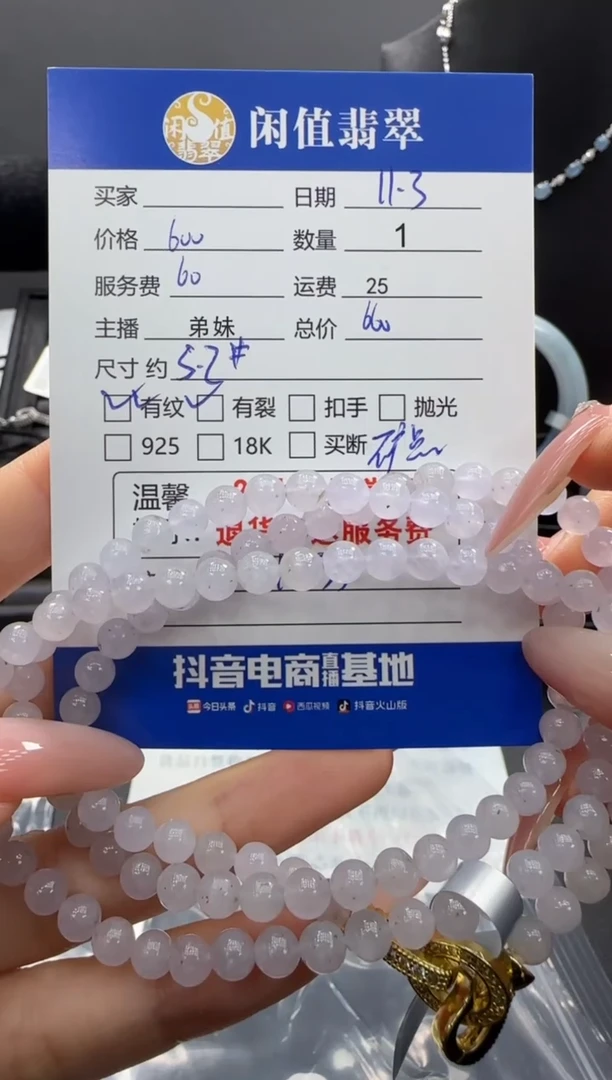 闲值翡翠
闲值翡翠
买家 日期 11-3
价格 600 数量 1
服务费 60 运费 25
主播 弟妹 总价 660
尺寸 约 5-7#
有纹 有裂 扣手 抛光
925 18K 买断 矿点
温馨
退货 服务费
抖音电商直播基地
头条 今日头条 抖音 西瓜视频 抖音火山版